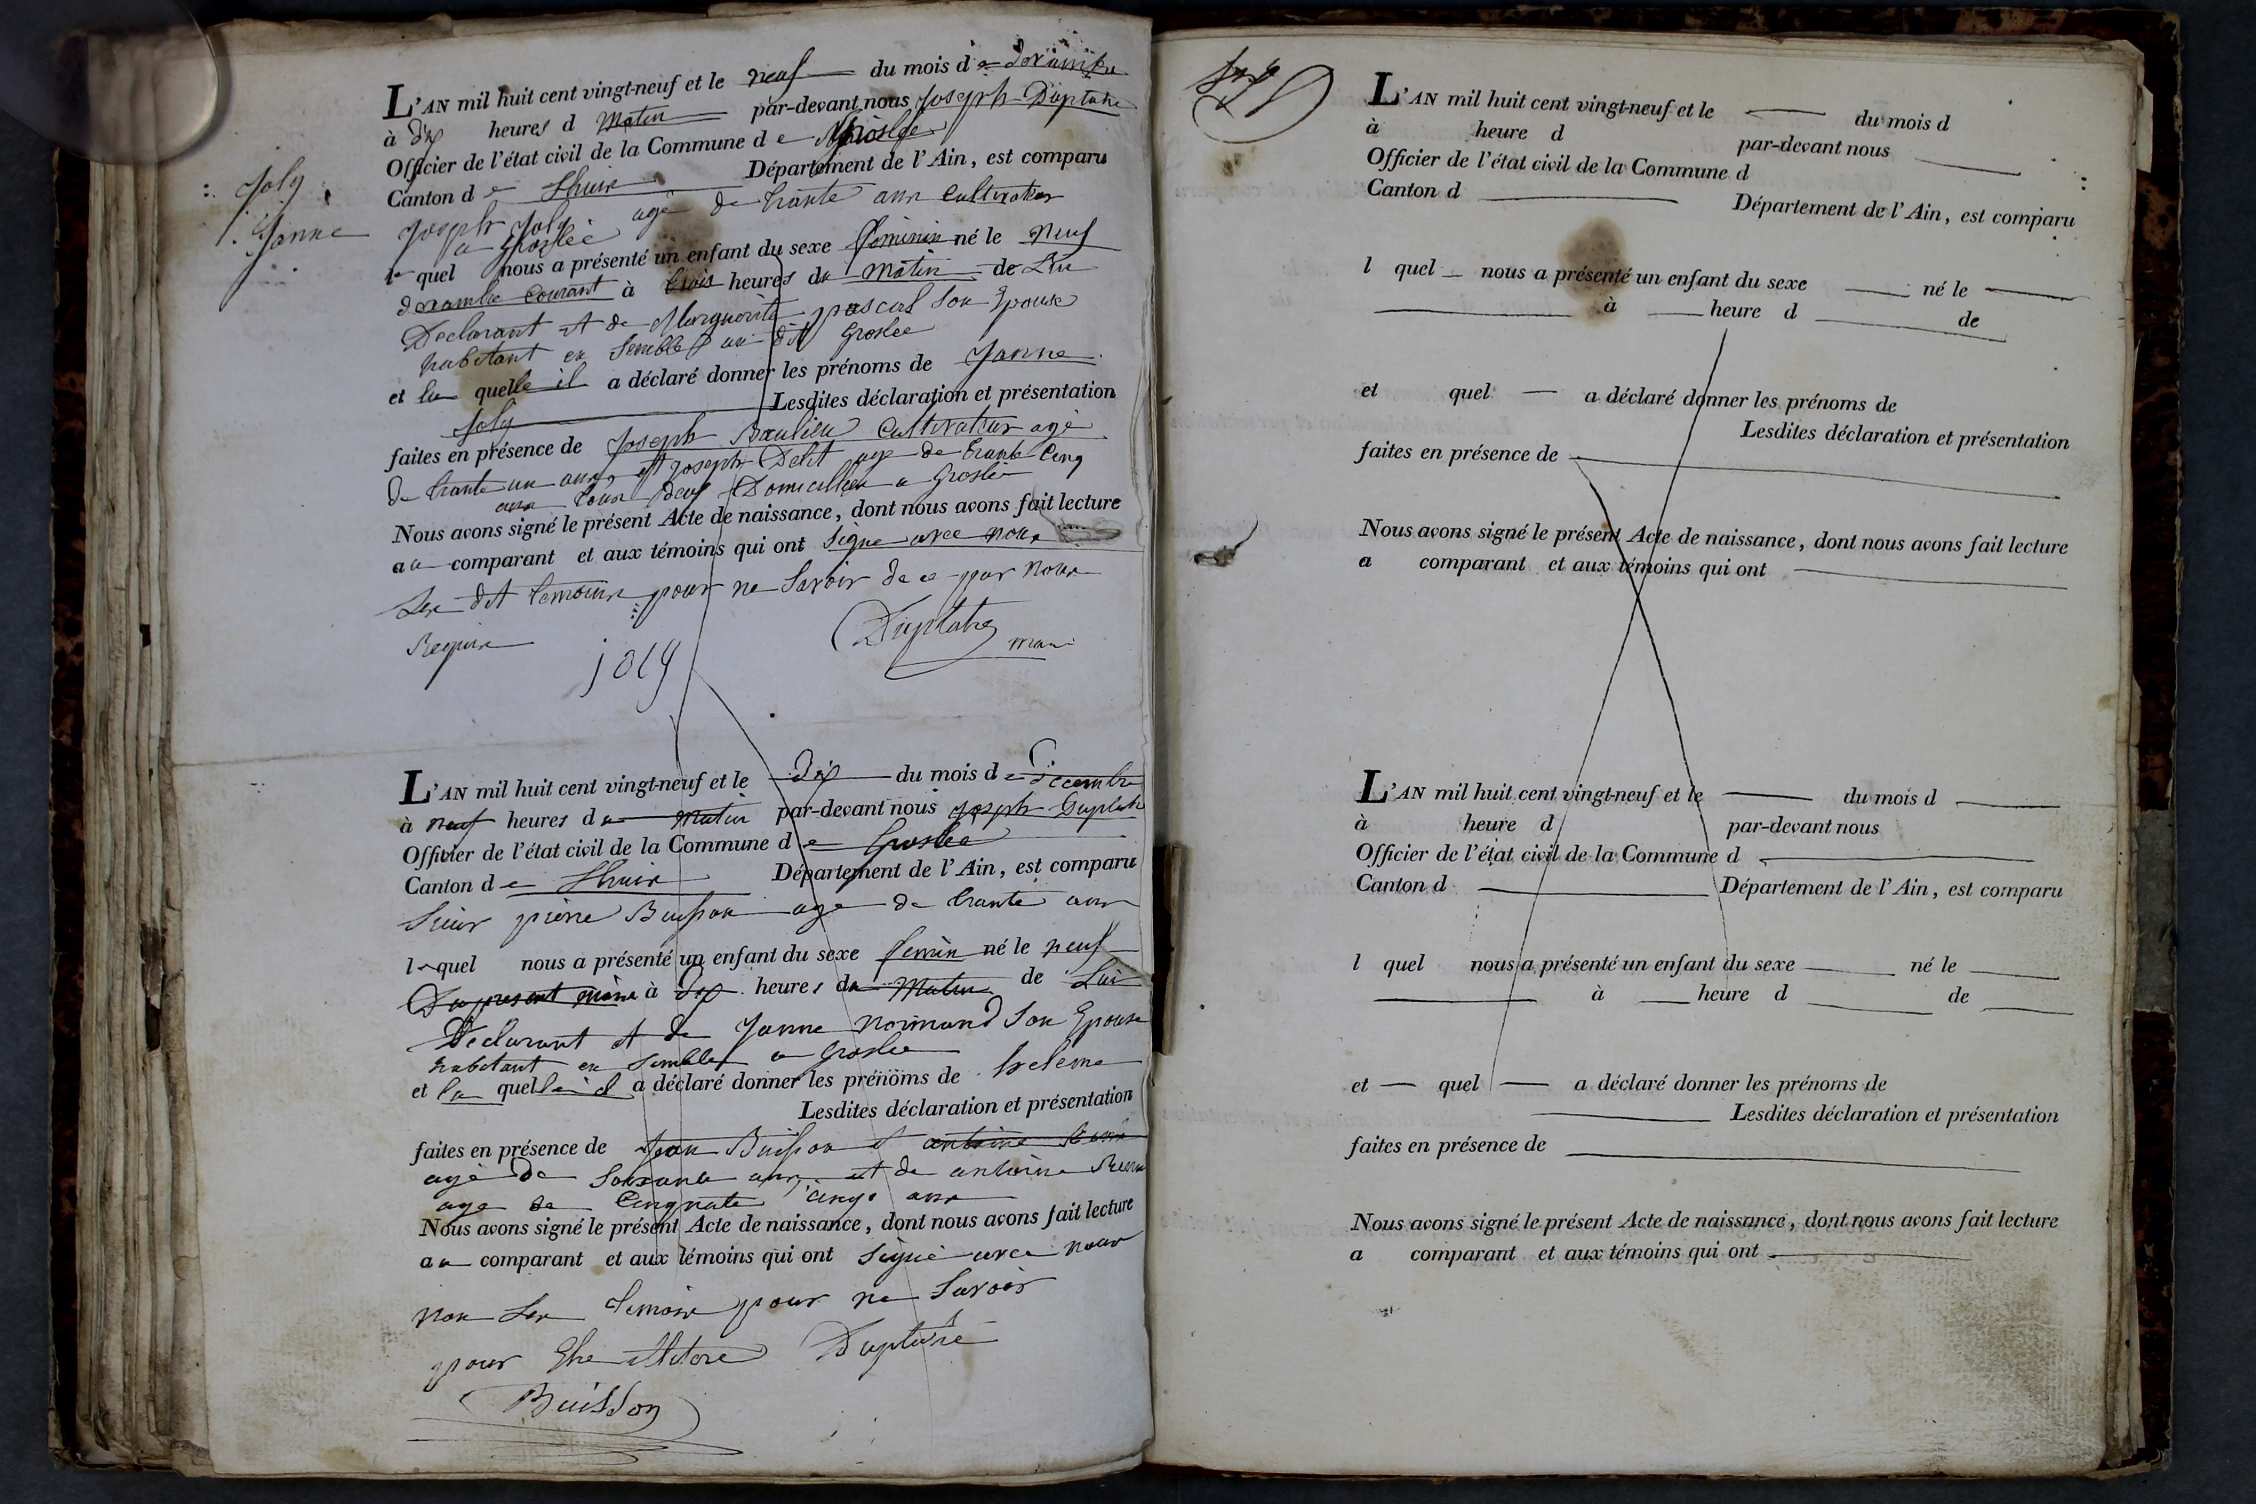 Joly
Janne
L'AN mil huit cent vingt-neuf et le neuf du mois de
à dix heures d matin par-devant nous Joseph Duplatre
Officier de l'état civil de la Commune de Groslée
Canton de Lhuis Département de l'Ain, est comparu
Joseph Joly agé de trante ans cultivateur
a Groslée
le quel nous a présenté un enfant du sexe feminin né le neuf
courant à trois heures du matin de Lui
Declarant et de Marguerite pascal Son Epouse
habitant en Semble au dit Groslée
et la quelle il a déclaré donner les prénoms de Janne
Joly Lesdites déclaration et présentation
faites en présence de Joseph Baulieu Cultivateur agé
de trante un ans et Joseph Delit age de trante Cinq
ans tous deux Domicillies a Groslée
Nous avons signé le présent Acte de naissance, dont nous avons fait lecture
au comparant et aux témoins qui ont Signe avec nous
Les dit temoins pour ne Savoir de ce par nous
Requis
joly Duplatre
L'AN mil huit cent vingt-neuf et le Dix du mois de Decembre
à neuf heures du matin par-devant nous Joseph Duplatre
Officier de l'état civil de la Commune de Groslée
Canton de Lhuis Département de l'Ain, est comparu
Sieur pierre Buisson age de trante ans
le quel nous a présenté un enfant du sexe né le neuf
Du present à Dix heures du Matin de Lui
Declarant et de Janne normand Son Epouse
habitant en Semble a Groslée
et la quelle il a déclaré donner les prénoms de helene
Lesdites déclaration et présentation
faites en présence de Jean Buisson et antoine
agé de ans et de antoine
age de Cinquate cinq ans
Nous avons signé le présent Acte de naissance, dont nous avons fait lecture
au comparant et aux témoins qui ont Signé avec nous
non Les Temoins pour ne Savoir
pour Duplatre
Buisson
L'AN mil huit cent vingt-neuf et le du mois d
à heure d par-devant nous
Officier de l'état civil de la Commune d
Canton d Département de l'Ain, est comparu
l quel nous a présenté un enfant du sexe né le
à heure d de
et quel a déclaré donner les prénoms de
Lesdites déclaration et présentation
faites en présence de
Nous avons signé le présent Acte de naissance, dont nous avons fait lecture
a comparant et aux témoins qui ont
L'AN mil huit cent vingt-neuf et le du mois d
à heure d par-devant nous
Officier de l'état civil de la Commune d
Canton d Département de l'Ain, est comparu
l quel nous a présenté un enfant du sexe né le
à heure d de
et quel a déclaré donner les prénoms de
Lesdites déclaration et présentation
faites en présence de
Nous avons signé le présent Acte de naissance, dont nous avons fait lecture
a comparant et aux témoins qui ont